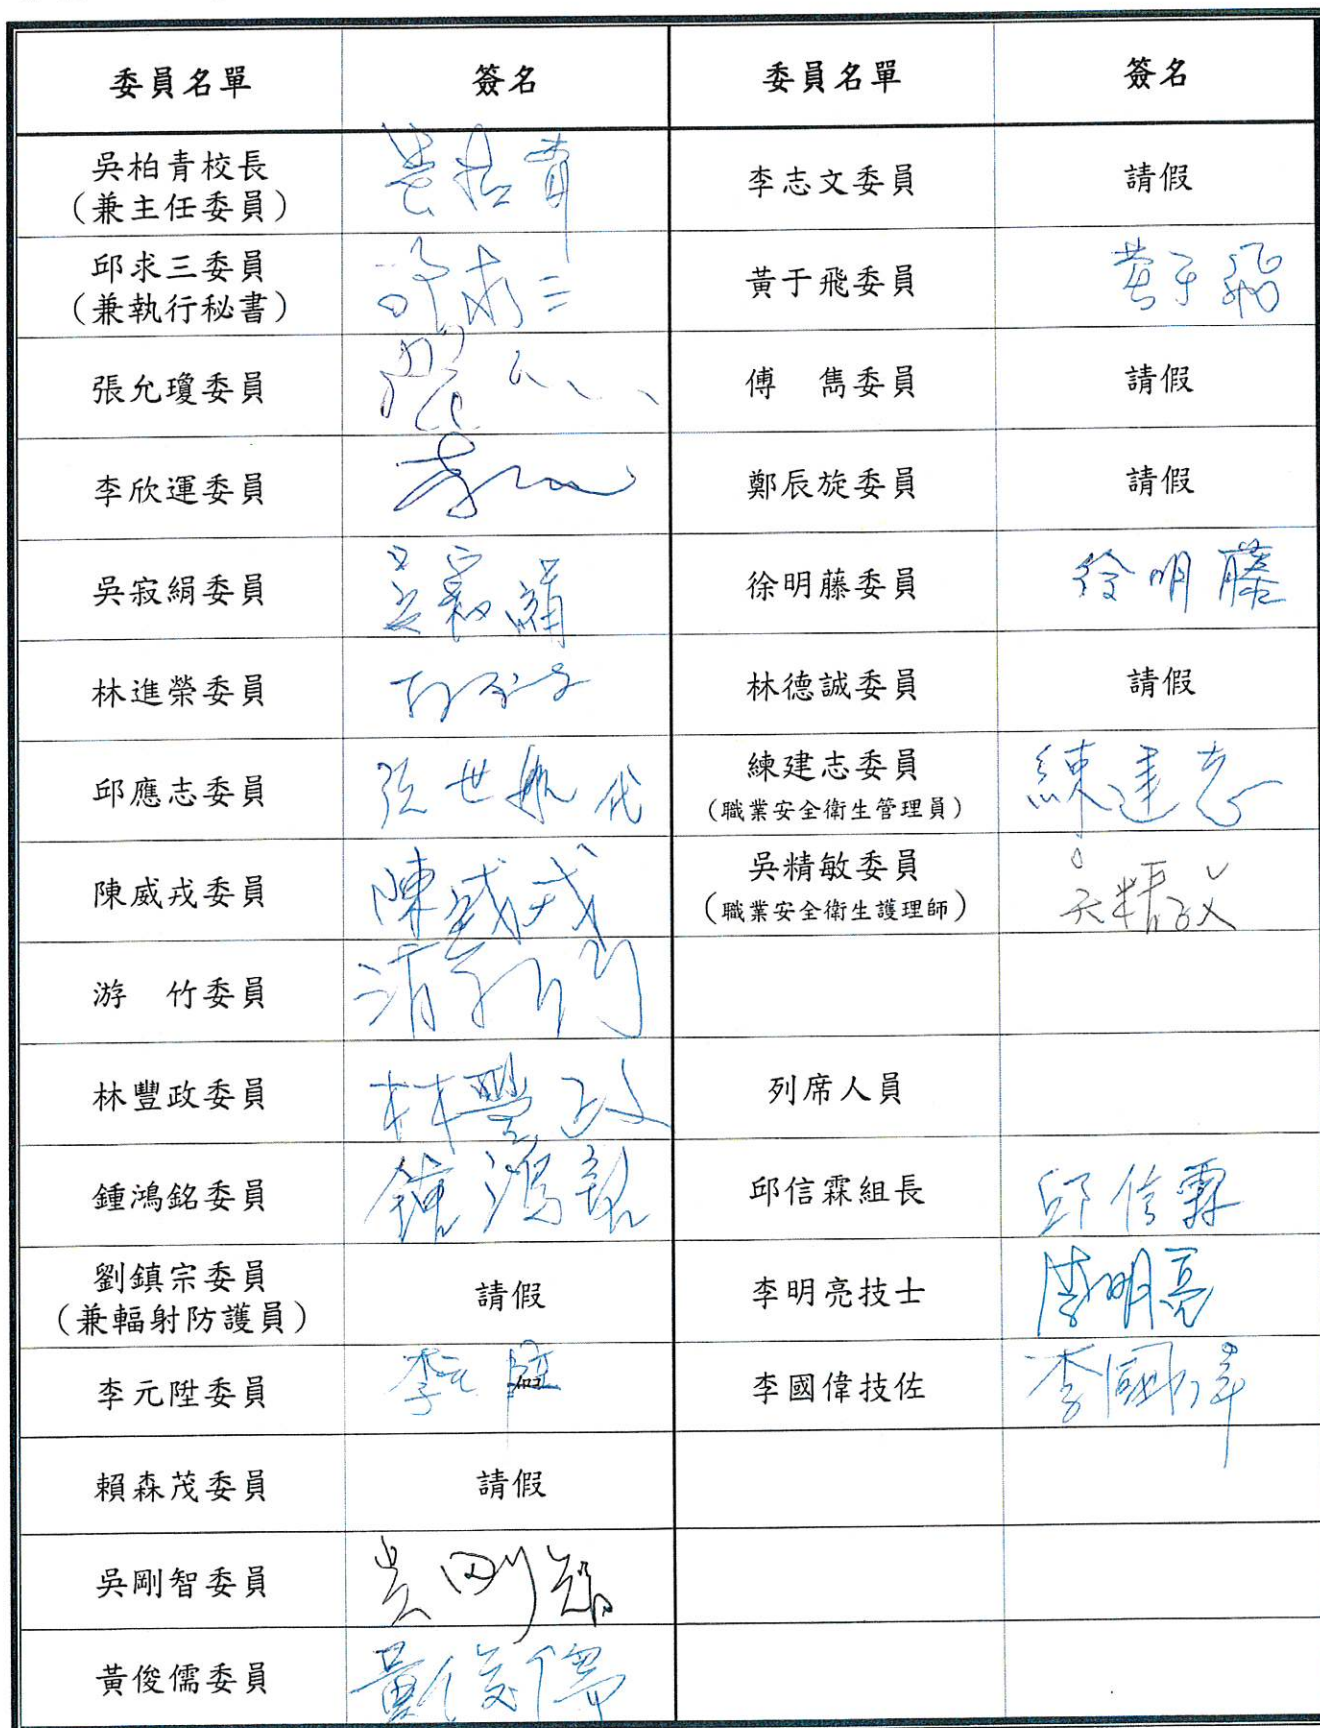 委員名單 簽名 委員名單 簽名
吳柏青校長 吳柏青 李志文委員 請假
（兼主任委員）
邱求三委員 邱求三 黃于飛委員 黃于飛
（兼執行秘書）
張允瓊委員 傅　雋委員 請假
李欣運委員 鄭辰旋委員 請假
吳寂絹委員 吳寂絹 徐明藤委員 徐明藤
林進榮委員 林德誠委員 請假
邱應志委員 張世航代 練建志委員 練建志
（職業安全衛生管理員）
陳威戎委員 陳威戎 吳精敏委員 吳精敏
（職業安全衛生護理師）
游　竹委員
林豐政委員 林豐政 列席人員
鍾鴻銘委員 鍾鴻銘 邱信霖組長 邱信霖
劉鎮宗委員 請假 李明亮技士 李明亮
（兼輻射防護員）
李元陞委員 李元陞 李國偉技佐 李國偉
賴森茂委員 請假
吳剛智委員 吳剛智
黃俊儒委員 黃俊儒